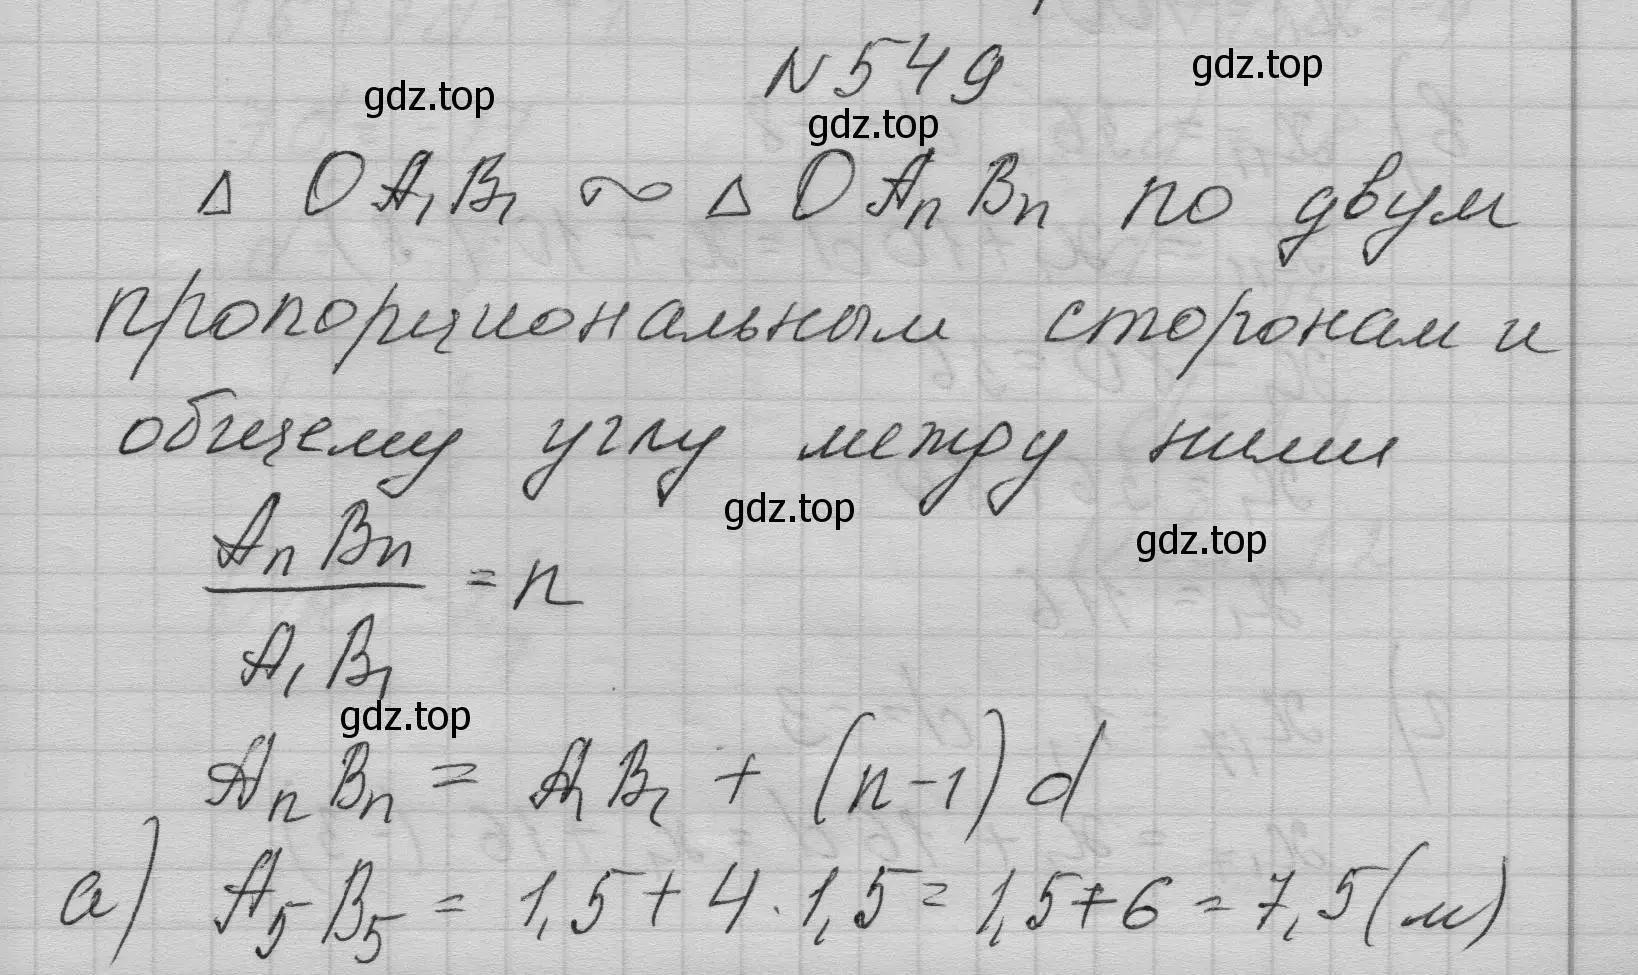 N 549
gdz.top
gdz.top
gdz.top
Δ OA₁B₁ ~ Δ OAₙBₙ по двум
пропорциональным сторонам и
общему углу между ними
gdz.top
gdz.top
AₙBₙ / A₁B₁ = n
gdz.top
AₙBₙ = A₁B₁ + (n-1)d
а) A₅B₅ = 1,5 + 4 · 1,5 = 1,5 + 6 = 7,5 (м)